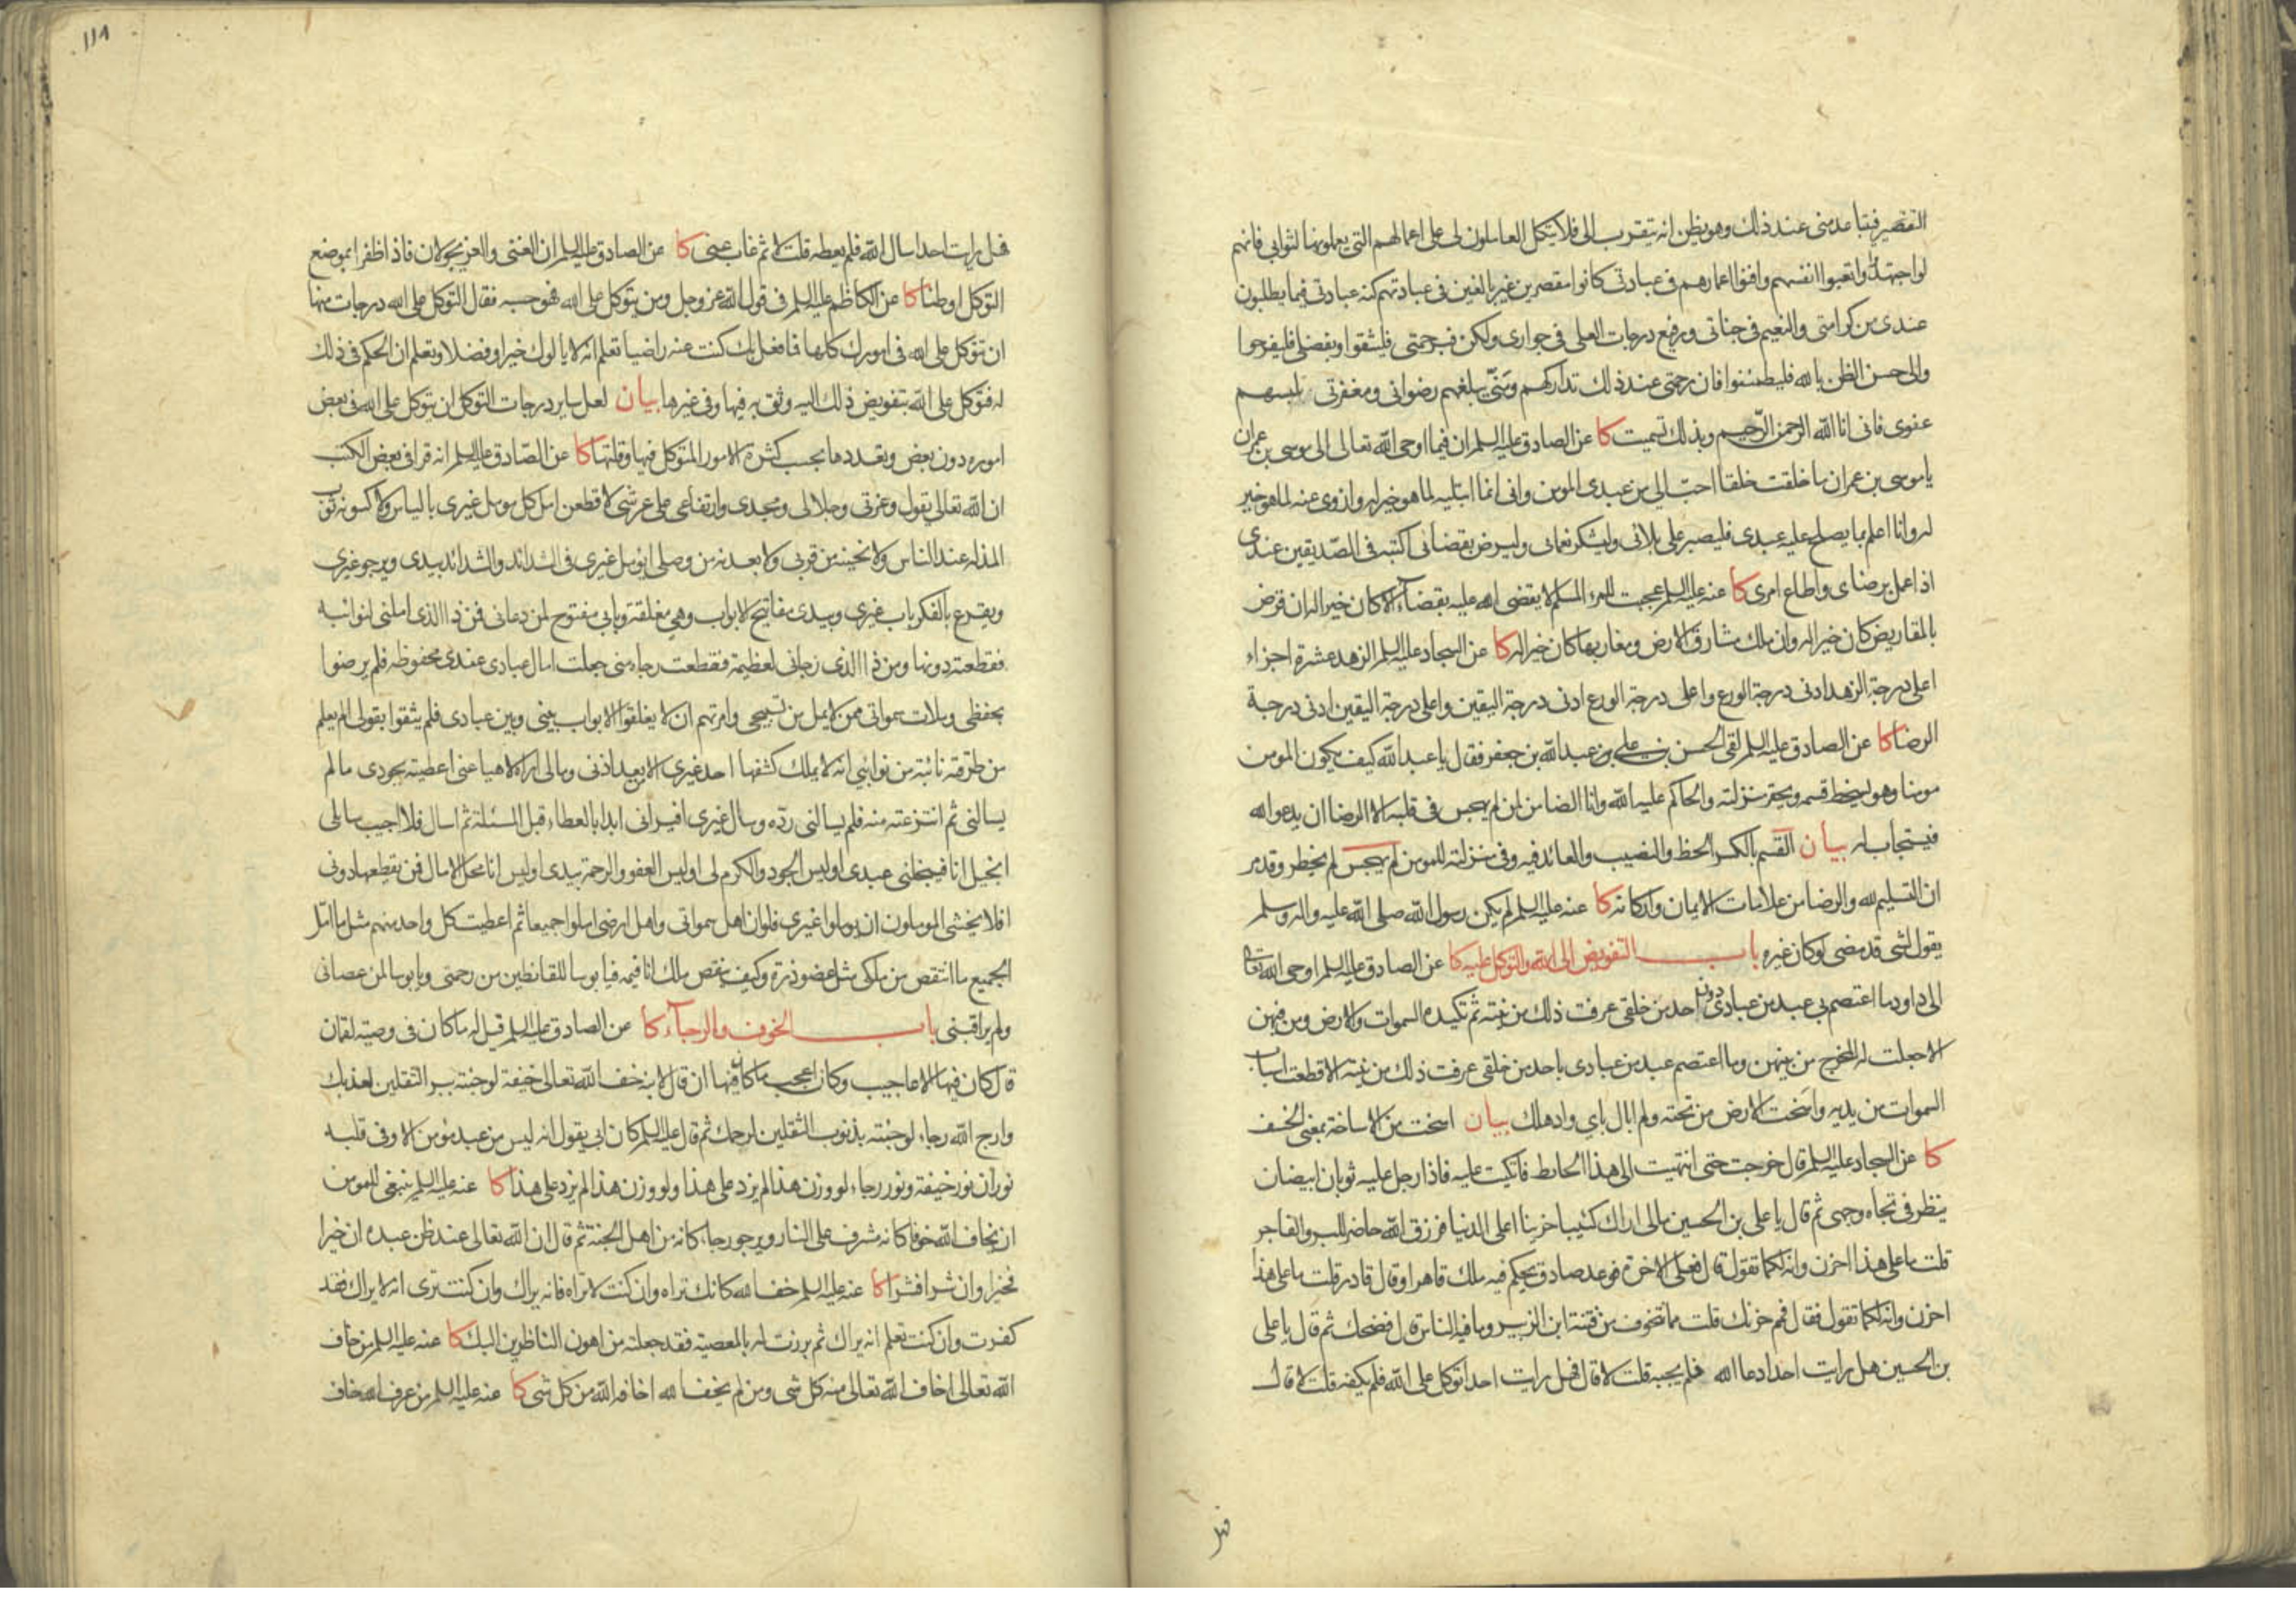 التقصير فيتباعد مني عند ذلك وهو يظن انه يتقرب الي فلا يتكل العاملون لي على اعمالهم التي يعملونها لثوابي فانهم
لو اجتهدوا واتعبوا انفسهم وافنوا اعمارهم في عبادتي كانوا مقصرين غير بالغين في عبادتهم كنه عبادتي فيما يطلبون
عندي من كرامتي والنعيم في جناتي ورفيع درجات العلى في جواري ولكن فبرحمتي فليثقوا وبفضلي فليفرحوا
والى حسن الظن بالله فليطمئنوا فان رحمتي عند ذلك تداركهم ومَنّي يبلغهم رضواني ومغفرتي تلبسهم
عفوي فاني انا الله الرحمن الرحيم وبذلك تسميت كا عن الصادق عليه السلم ان فيما اوحى الله تعالى الى موسى بن عمران
يا موسى بن عمران ما خلقت خلقا احب الي من عبدي المومن واني انما ابتليه لما هو خير له وازوي عنه لما هو خير
له وانا اعلم بما يصلح عليه عبدي فليصبر على بلائي وليشكر نعمائي وليرض بقضائي اكتبه في الصديقين عندي
اذا عمل برضاي واطاع امري كا عنه عليه السلم عجبت للمرء المسلم لا يقضي الله عليه بقضاء الا كان خيرا له ان قرض
بالمقاريض كان خيرا له وان ملك مشارق الارض ومغاربها كان خيرا له كا عن السجاد عليه السلم الزهد عشرة اجزاء
اعلى درجة الزهد ادنى درجة الورع واعلى درجة الورع ادنى درجة اليقين واعلى درجة اليقين ادنى درجة
الرضا كا عن الصادق عليه السلم لقى الحسن بن علي بن عبد الله بن جعفر فقال يا عبد الله كيف يكون المومن
مومنا وهو يسخط قسمه ويحقر منزلته والحاكم عليه الله وانا الضامن لمن لم يهجس في قلبه الا الرضا ان يدعو الله
فيستجاب له بيان القسم بالكسر الحظ والنصيب والعائد فيه وفي منزلته للمومن لم يهجس لم يخطر وقد مر
ان التسليم لله والرضا من علامات الايمان واركانه كا عنه عليه السلم لم يكن رسول الله صلى الله عليه واله وسلم
يقول لشي قد مضى لو كان غيره باب التفويض الى الله والتوكل عليه كا عن الصادق عليه السلم اوحى الله تعالى
الى داود ما اعتصم بي عبد من عبادي دون احد من خلقي عرفت ذلك من نيته ثم تكيده السموات والارض ومن فيهن
الا جعلت له المخرج من بينهن وما اعتصم عبد من عبادي باحد من خلقي عرفت ذلك من نيته الا قطعت اسباب
السموات من يديه واسخت الارض من تحته ولم ابال باي واد هلك بيان اسخت من الاساخة بمعنى الخسف
كا عن السجاد عليه السلم قال خرجت حتى انتهيت الى هذا الحايط فاتكيت عليه فاذا رجل عليه ثوبان ابيضان
ينظر في تجاه وجهي ثم قال يا علي بن الحسين مالي اراك كئيبا حزينا اعلى الدنيا فرزق الله حاضر للبر والفاجر
قلت ما على هذا احزن وانه لكما تقول قال فعلى الاخرة فوعد صادق يحكم فيه ملك قاهر او قال قادر قلت ما على هذا
احزن وانه لكما تقول فقال فمم حزنك قلت مما تخوف من فتنة ابن الزبير وما فيه الناس قال فضحك ثم قال يا علي
بن الحسين هل رايت احدا دعا الله فلم يجبه قلت لا قال فهل رايت احدا توكل على الله فلم يكفه قلت لا قال
فهل
۱۱۸
فهل رايت احدا سال الله فلم يعطه قلت لا ثم غاب عني كا عن الصادق عليه السلم ان الغنى والعز يجولان فاذا ظفرا بموضع
التوكل اوطنا كا عن الكاظم عليه السلم في قول الله عز وجل ومن يتوكل على الله فهو حسبه فقال التوكل على الله درجات منها
ان تتوكل على الله في امورك كلها فما فعل بك كنت عنه راضيا تعلم انه لا يالوك خيرا وفضلا وتعلم ان الحكم في ذلك
له فتوكل على الله بتفويض ذلك اليه وثق به فيها وفي غيرها بيان لعل ساير درجات التوكل ان يتوكل على الله في بعض
اموره دون بعض وتعددها بحسب كثرة الامور المتوكل فيها وقلتها كا عن الصادق عليه السلم انه قرا في بعض الكتب
ان الله تعالى يقول وعزتي وجلالي ومجدي وارتفاعي على عرشي لاقطعن امل كل مومل غيري بالياس ولاكسونه ثوب
المذلة عند الناس ولانحينه من قربي ولابعدنه من وصلي ايومل غيري في الشدائد والشدائد بيدي ويرجو غيري
ويقرع بالفكر باب غيري وبيدي مفاتيح الابواب وهي مغلقة وبابي مفتوح لمن دعاني فمن ذا الذي املني لنوائبه
فقطعته دونها ومن ذا الذي رجاني لعظيمة فقطعت رجاءه مني جعلت امال عبادي عندي محفوظة فلم يرضوا
بحفظي وملات سمواتي ممن لا يمل من تسبيحي وامرتهم ان لا يغلقوا الابواب بيني وبين عبادي فلم يثقوا بقولي الم يعلم
من طرقته نائبة من نوائبي انه لا يملك كشفها احد غيري الا من بعد اذني ومالي اراه لاهيا عني اعطيته بجودي ما لم
يسالني ثم انتزعته منه فلم يسالني رده وسال غيري افيراني ابدا بالعطاء قبل المسئلة ثم اسال فلا اجيب سائلي
ابخيل انا فيبخلني عبدي اوليس الجود والكرم لي اوليس العفو والرحمة بيدي اوليس انا محل الامال فمن يقطعها دوني
افلا يخشى الموملون ان يوملوا غيري فلو ان اهل سمواتي واهل ارضي املوا جميعا ثم اعطيت كل واحد منهم مثل ما امل
الجميع ما انتقص من ملكي مثل عضو ذرة وكيف ينقص ملك انا قيمه فيا بوسا للقانطين من رحمتي ويا بوسا لمن عصاني
ولم يراقبني باب الخوف والرجاء كا عن الصادق عليه السلم قيل له ما كان في وصية لقمان
قال كان فيها الاعاجيب وكان اعجب ما كان فيها ان قال لابنه خف الله تعالى خيفة لو جئته ببر الثقلين لعذبك
وارج الله رجاء لو جئته بذنوب الثقلين لرحمك ثم قال عليه السلم كان ابي يقول انه ليس من عبد مومن الا وفي قلبه
نوران نور خيفة ونور رجاء لو وزن هذا لم يزد على هذا ولو وزن هذا لم يزد على هذا كا عنه عليه السلم ينبغي للمومن
ان يخاف الله خوفا كانه مشرف على النار ويرجو رجاء كانه من اهل الجنة ثم قال ان الله تعالى عند ظن عبده ان خيرا
فخيرا وان شرا فشرا كا عنه عليه السلم خف الله كانك تراه وان كنت لا تراه فانه يراك وان كنت ترى انه لا يراك فقد
كفرت وان كنت تعلم انه يراك ثم برزت له بالمعصية فقد جعلته من اهون الناظرين اليك كا عنه عليه السلم من خاف
الله تعالى اخاف الله تعالى منه كل شي ومن لم يخف الله اخافه الله من كل شي كا عنه عليه السلم من عرف الله خاف